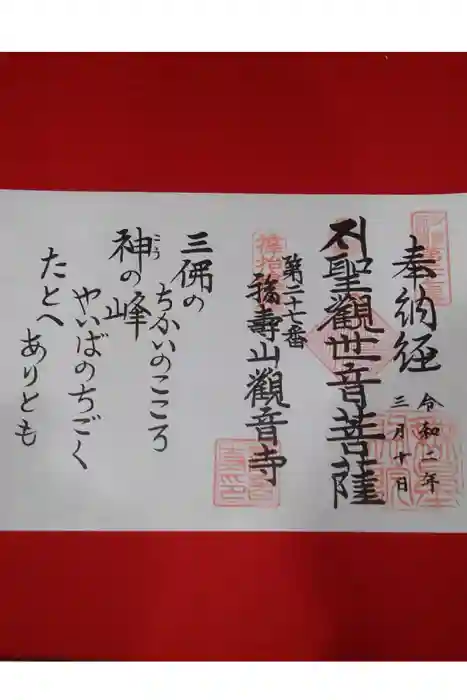 奉納経
令和二年
三月十日
聖觀世音菩薩
第二十七番
福壽山觀音寺
三佛の
ちかいのこころ
神の峰
こう
やいばのちごく
たとへ
ありとも